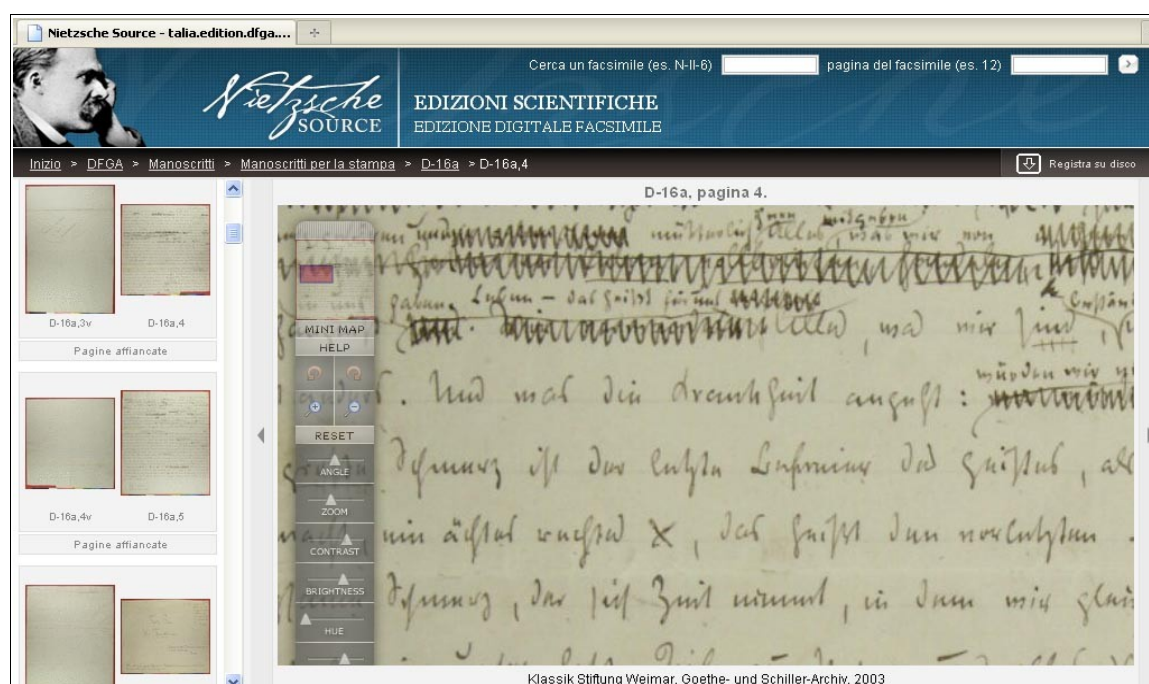 Nietzsche Source - talia.edition.dfga....
Cerca un facsimile (es. N-II-6) pagina del facsimile (es. 12)
Nietzsche
SOURCE
EDIZIONI SCIENTIFICHE
EDIZIONE DIGITALE FACSIMILE
Inizio > DFGA > Manoscritti > Manoscritti per la stampa > D-16a > D-16a,4
Registra su disco
D-16a,3v D-16a,4
Pagine affiancate
D-16a,4v D-16a,5
Pagine affiancate
D-16a, pagina 4.
MINI MAP
HELP
RESET
ANGLE
ZOOM
CONTRAST
BRIGHTNESS
HUE
mitgeben
mütterlich Alles, was wir von
Leben – das heißt für uns
Alles, was wir sind,
würden wir
. Und was die Krankheit angeht:
Schmerz ist der letzte Befreier des Geistes, als
ein ächtes rechtes X, das heißt den vorletzten
Schmerz, der sich Zeit nimmt, in dem wir
Klassik Stiftung Weimar, Goethe- und Schiller-Archiv, 2003